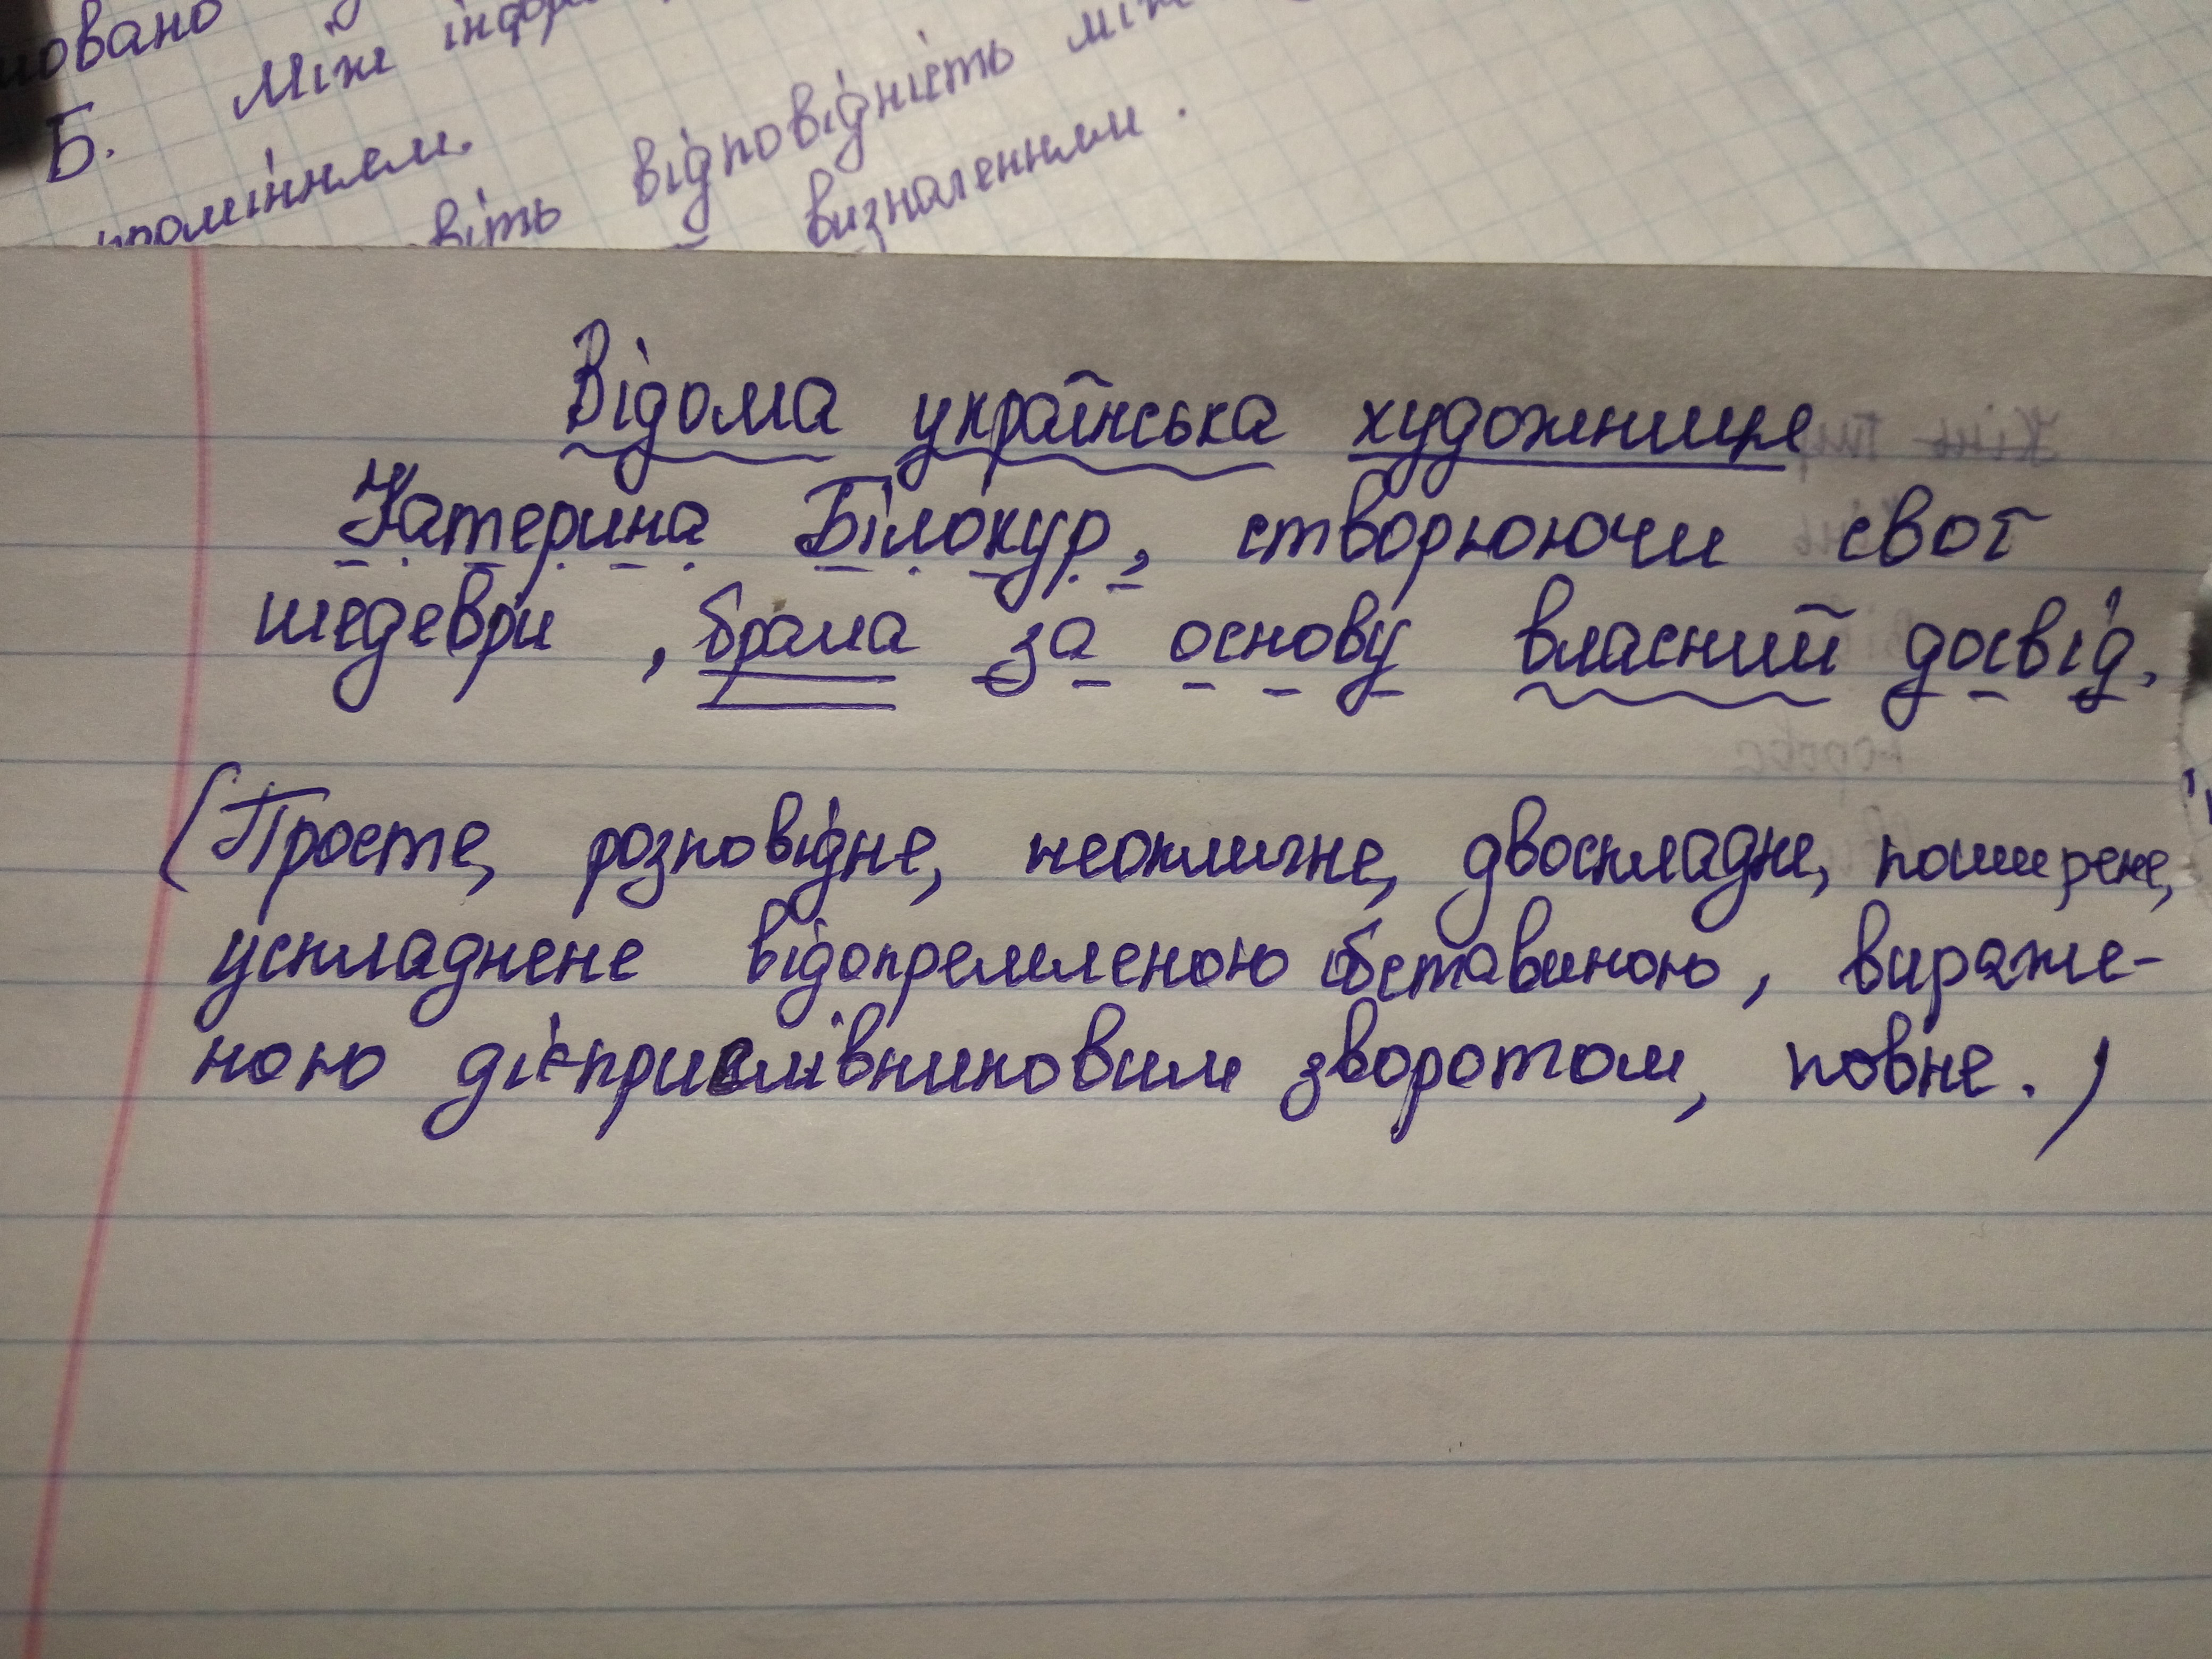 Б. Між
відповідність
визначенням.
Відома українська художниця
Катерина Білокур, створюючи свої
шедеври, брала за основу власний досвід.
(Просте, розповідне, неокличне, двоскладне, поширене,
ускладнене відокремленою обставиною, вираже-
ною дієприслівниковим зворотом, повне.)